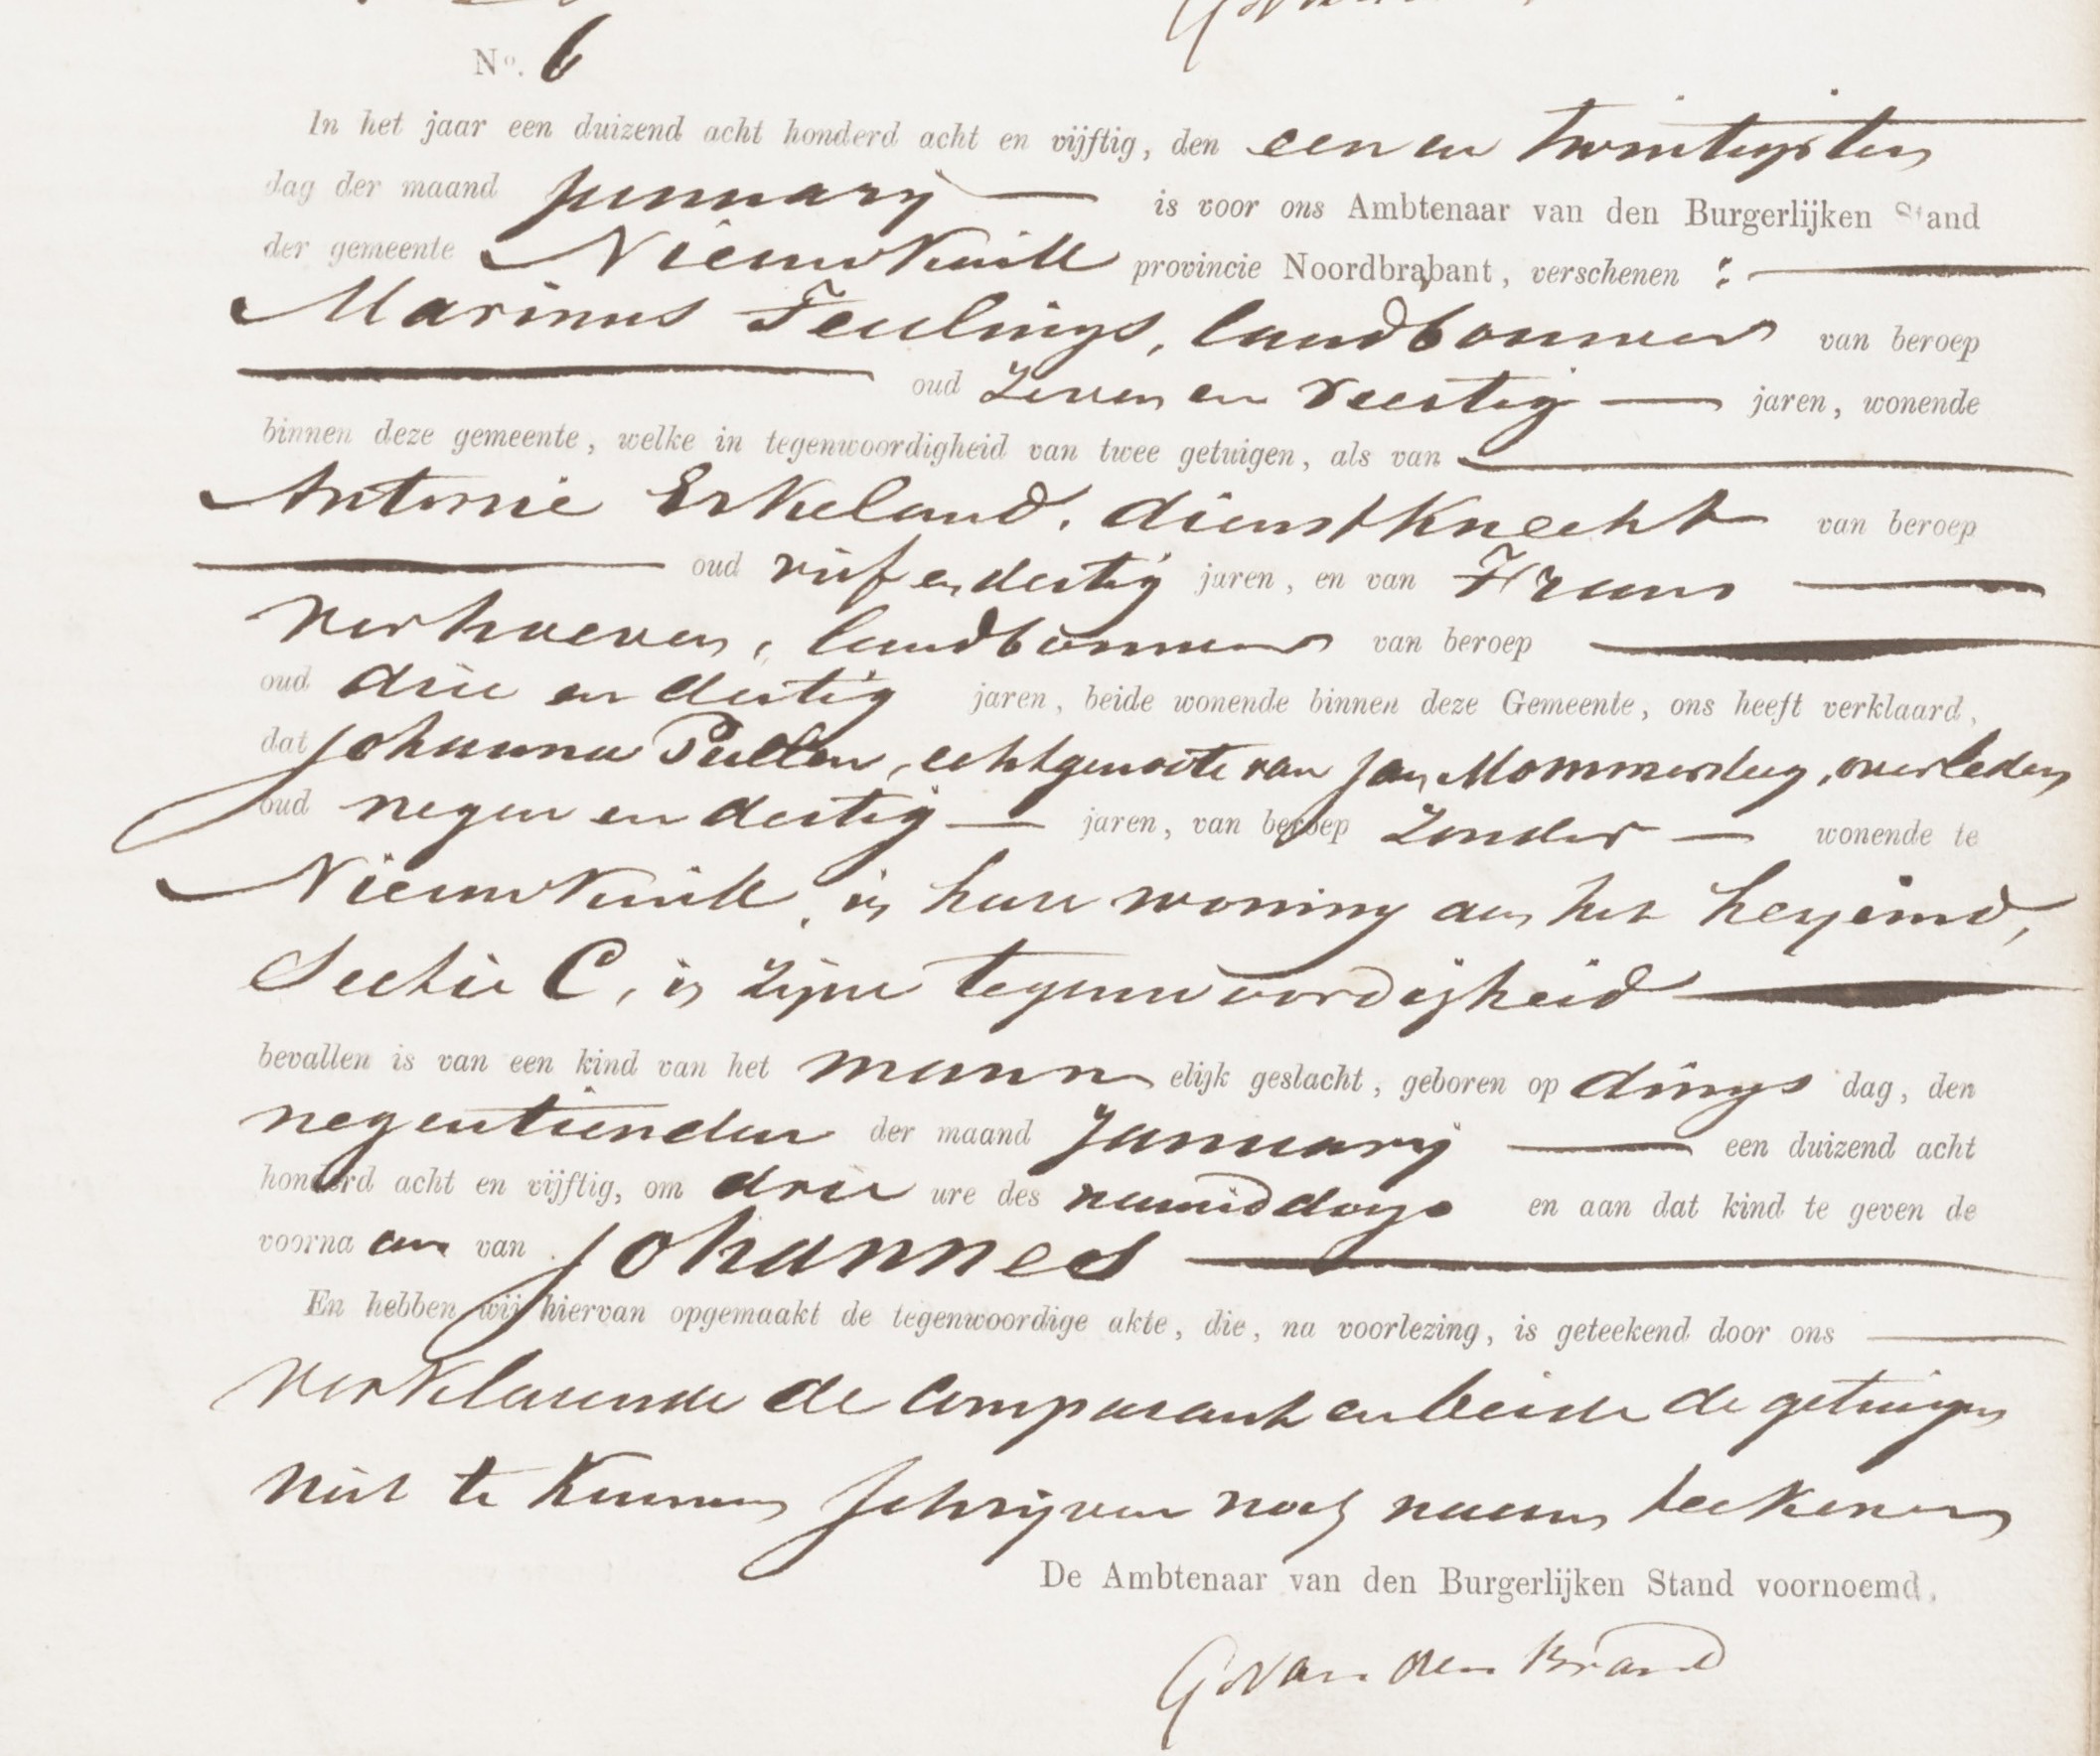 No. 6
In het jaar een duizend acht honderd acht en vijftig, den een en twintigsten
dag der maand january is voor ons Ambtenaar van den Burgerlijken Stand
der gemeente Nieuwkuik provincie Noordbrabant, verschenen :
Marinus Teulings, landbouwer van beroep
oud zeven en veertig jaren, wonende
binnen deze gemeente, welke in tegenwoordigheid van twee getuigen, als van
Antonie Erkeland, dienstknecht van beroep
oud vijf en dertig jaren, en van Frans
verhoeven, landbouwer van beroep
oud drie en dertig jaren, beide wonende binnen deze Gemeente, ons heeft verklaard,
dat Johanna Pullen, echtgenoote van Jan Mommersteeg, overleden
oud negen en dertig jaren, van beroep zonder wonende te
Nieuwkuik, in hare woning aan het heyeind,
Sectie C, in zijne tegenwoordigheid
bevallen is van een kind van het mannelijk geslacht, geboren op dings dag, den
negentienden der maand January een duizend acht
honderd acht en vijftig, om drie ure des namiddags en aan dat kind te geven de
voornaam van Johannes
En hebben wij hiervan opgemaakt de tegenwoordige akte, die, na voorlezing, is geteekend door ons
verklarende de comparant en beide de getuigen
niet te kunnen schrijven noch naam teekenen
De Ambtenaar van den Burgerlijken Stand voornoemd,
G van den Brand